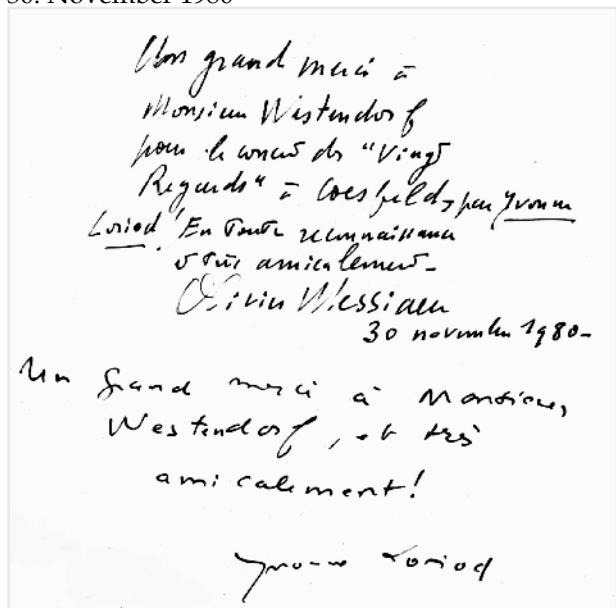 30. November 1980
Un grand merci à
Monsieur Westendorf
pour le concert des "Vingt
Regards" à Coesfeld, par Yvonne
Loriod! En toute reconnaissance
et très amicalement -
Olivier Messiaen
30 novembre 1980 -
Un grand merci à Monsieur
Westendorf, et très
amicalement!
Yvonne Loriod